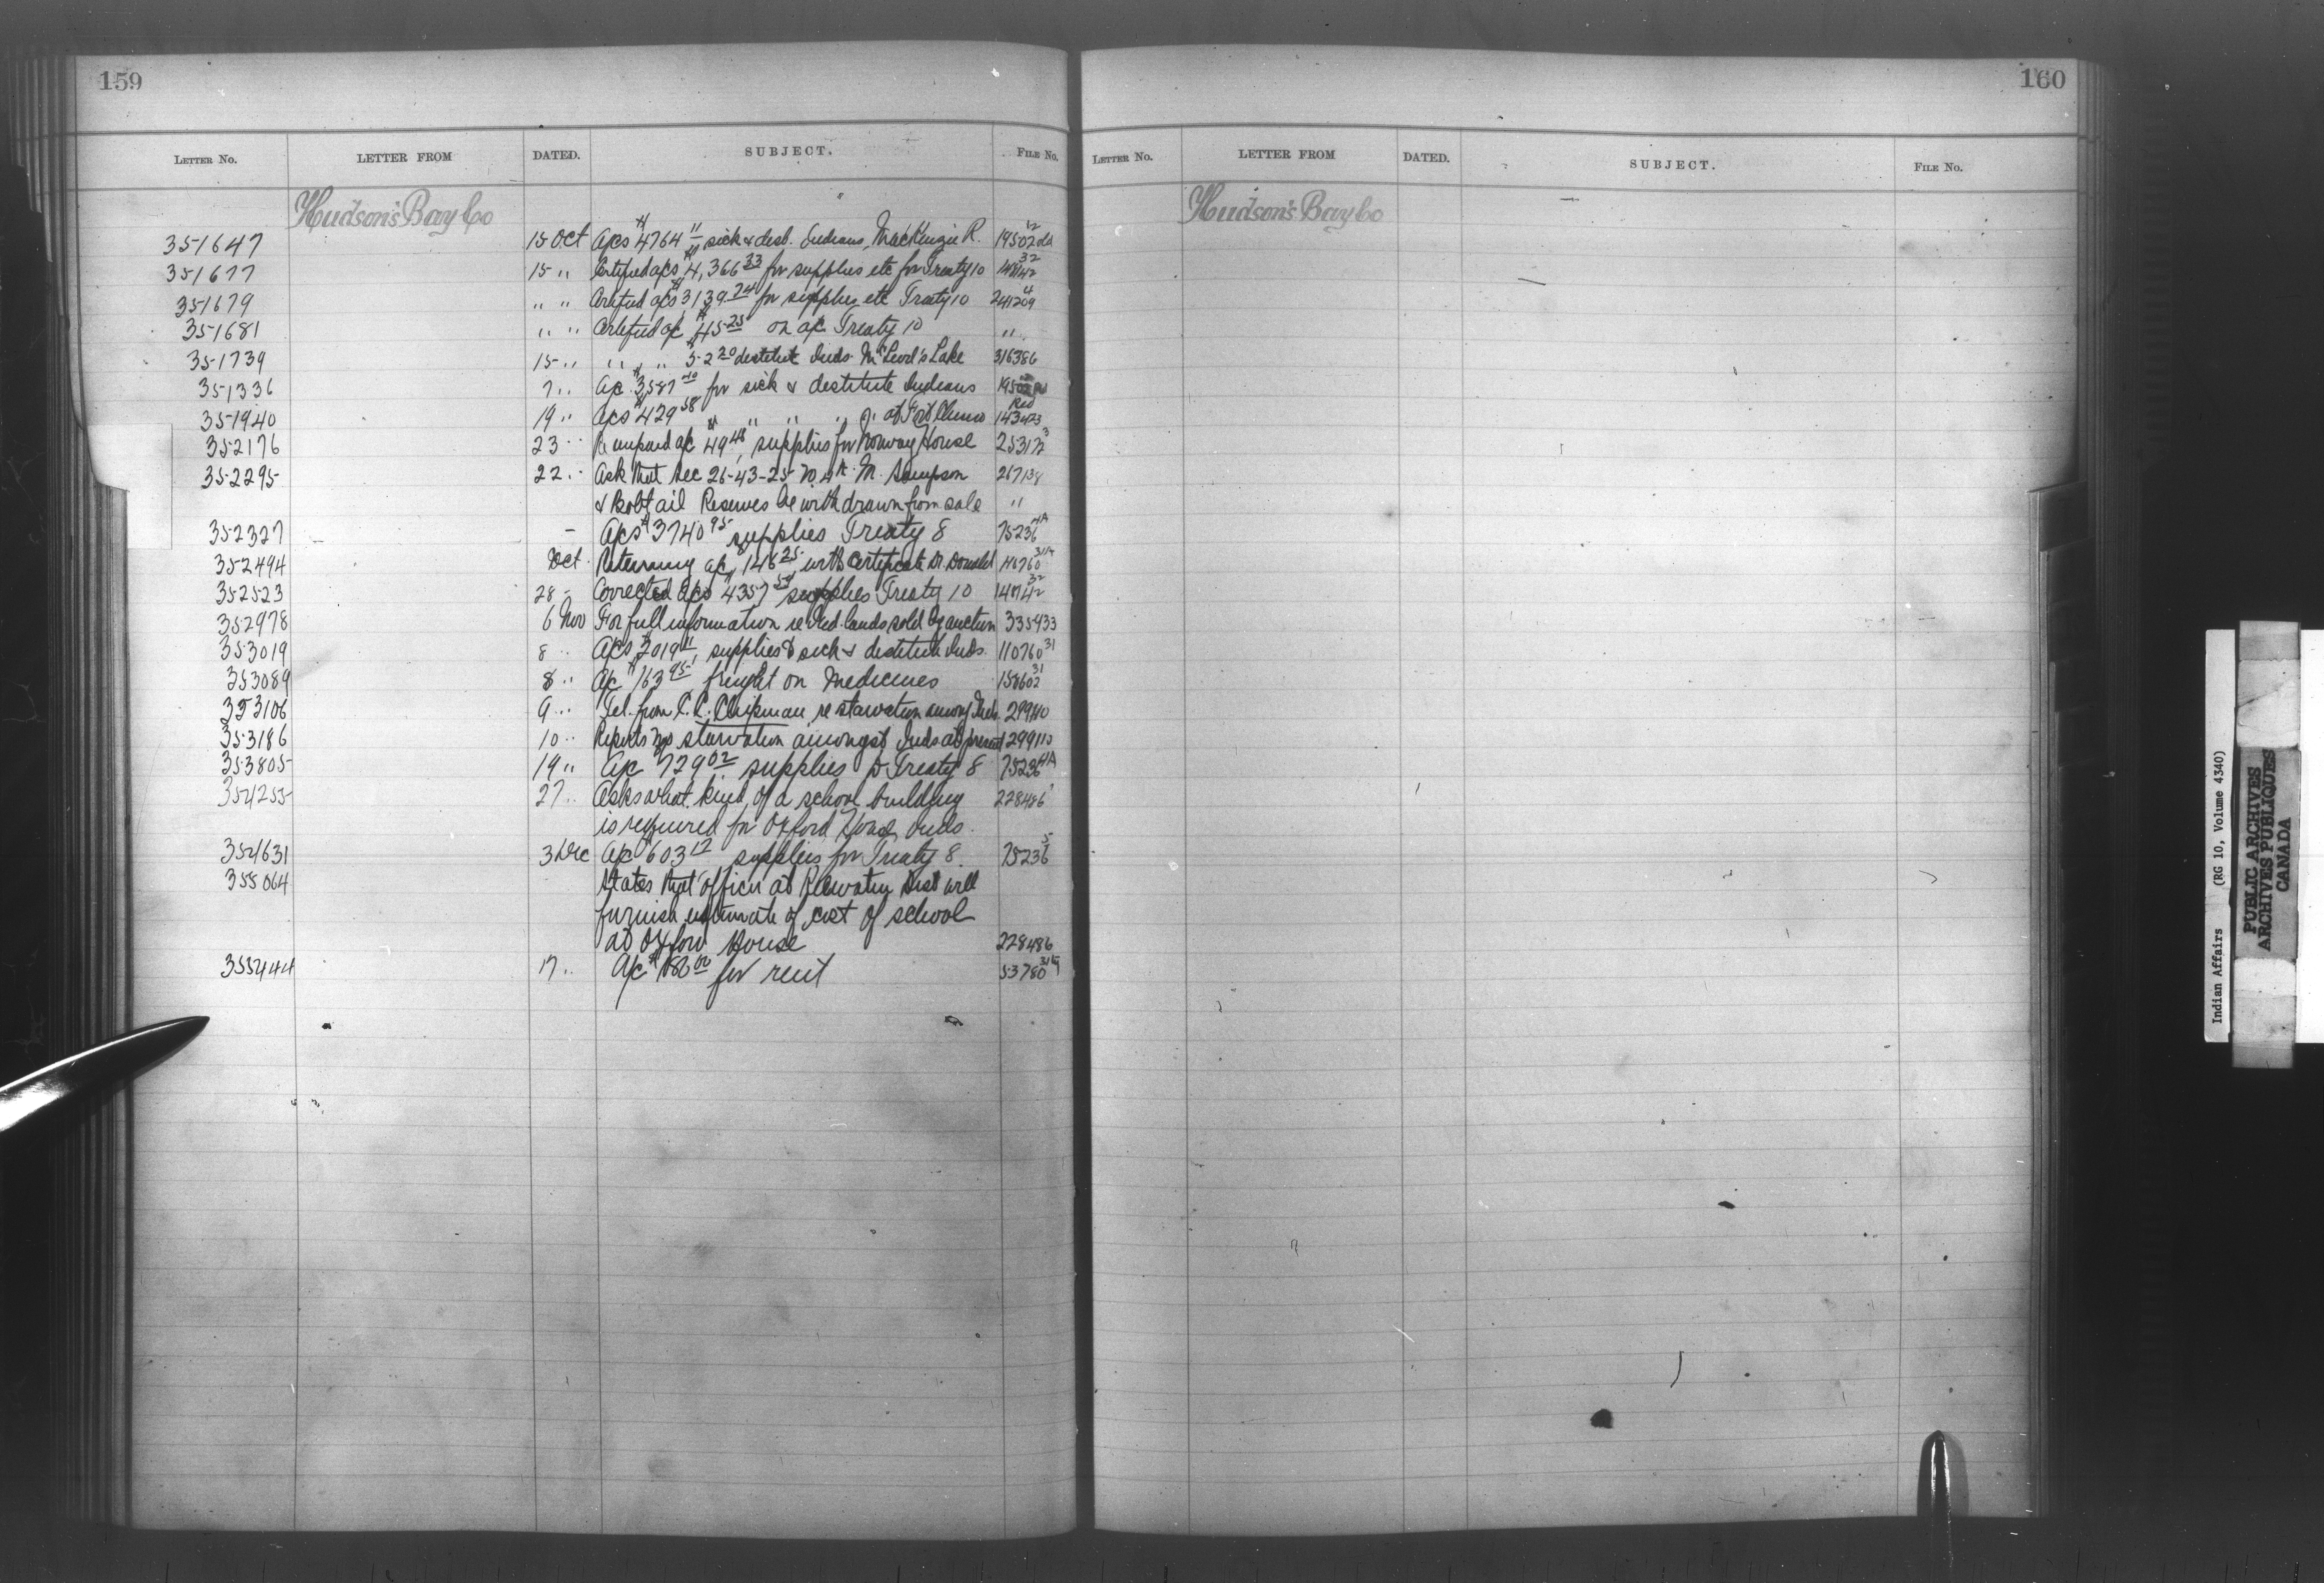 159
LETTER NO. LETTER FROM DATED. SUBJECT. FILE No.
Hudson's Bay Co
351647 15 Oct A/cs $4764 11 sick & dest. Indians, MacKenzie R. 19502
351677 15 " Certified a/cs $4,366 33 for supplies etc for Treaty 10
351679 " " Certified a/cs $3139 74 for supplies etc Treaty 10 241209 4
351681 " " Certified a/c $45 25 on a/c Treaty 10 "
351739 15 " " " 52 20 destitute Inds Lake 316386
351336 7 " A/c $3,587 for sick & destitute Indians
351940 19 " A/cs $429 58 " " " at Fort Chimo Red 143423
352176 23 " Re unpaid a/c $49 48, supplies for Norway House 253172 3
352295 22 " Ask that Sec 26-43-25 W 4th M. Sampson 267138
& Bobtail Reserves be withdrawn from sale "
352327 - A/cs $3740 95 supplies Treaty 8 75236 4A
352494 Oct Returning a/c, 146 25 with certificate Dr. Donald
352523 28 - Corrected a/cs $4357 supplies Treaty 10 32
352978 6 Nov For full information re Ind. lands sold by auction 335433
353019 8 " A/cs $2019 11, supplies to sick & destitute Inds. 110760 31
353089 8 " A/c $163 95 freight on Medicines 158602 31
353106 9 " Tel. from C. C. Chipman re starvation among Inds. 299110
353186 10 " Reports no starvation amongst Inds at present 299110
353805 19 " A/c $729 02 supplies to Treaty 8 75236 4A
354255 27 " Asks what kind of a school building 228486
is required for Oxford House Inds.
354631 3 Dec A/c $603 12 supplies for Treaty 8. 75236 5
355064 States that officer at Keewatin Dist will
furnish estimate of cost of school
at Oxford House 228486
355444 17 " A/c $ for rent 53780
160
LETTER NO. LETTER FROM DATED. SUBJECT. FILE No.
Hudson's Bay Co
Indian Affairs (RG 10, Volume 4340)
PUBLIC ARCHIVES
ARCHIVES PUBLIQUES
CANADA